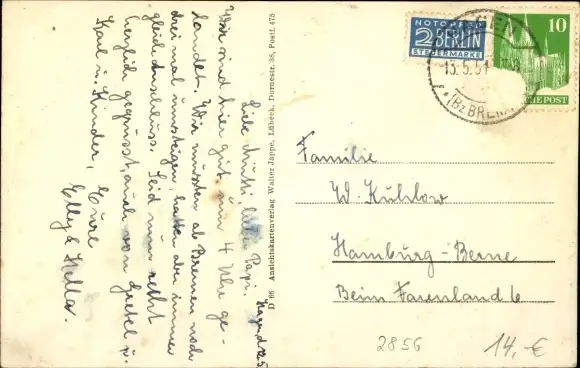 Hagen d. 12.5.
Liebe Mutti, lieber Papi.
Wir sind hier gut um 4 Uhr ge-
landet. Wir mussten ab Bremen noch
drei mal umsteigen, hatten aber immer
gleich Anschluss. Seid nun recht
herzlich gegrüsst, auch von Gretel u.
Karl u. Kinder, Eure
Elly &
D 66 Ansichtskartenverlag Walter Jappe, Lübeck, Dornestr. 38, Postf. 475
NOTOPFER
2 BERLIN
STEUERMARKE
GEN
13.5.51
(Bz BREM
10
HE POST
Familie
W. Kühlow
Hamburg-Berne
Beim Farenland 6
2856
14,-€